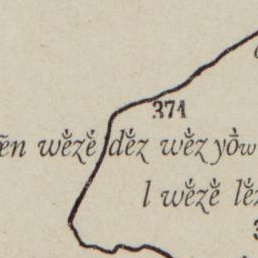 371
ẽn wĕ́zĕ́ dĕ́z wĕ́z yŏ̀w
l wĕ́zĕ́ lĕ́z